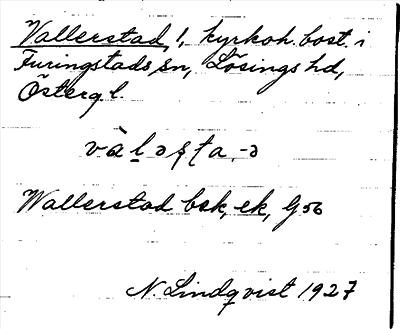 Vallerstad, !, kyrkoh. bost. i
Furingstads sn, Lösings hd,
Österg. l.
Wallerstad bsk, ek, G 56
N Lindqvist 1927